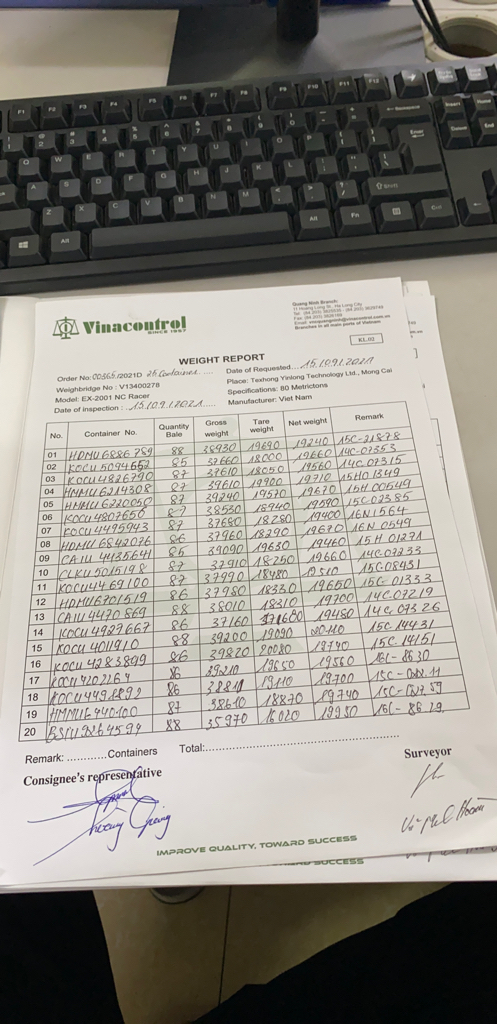 Vinacontrol
SINCE 1957
Quang Ninh Branch:
11 Hoang Long St., Ha Long City
Branches in all main ports of Vietnam
KL.02
WEIGHT REPORT
Order No: 00365/2021D 25 Container
Date of Requested 15/09/2021
Weighbridge No : V13400278
Place: Texhong Yinlong Technology Ltd., Mong Cai
Model: EX-2001 NC Racer
Specifications: 80 Metrictons
Date of inspection : 15/09/2021
Manufacturer: Viet Nam
No. Container No. Quantity Bale Gross weight Tare weight Net weight Remark
01 HDMU6886789 88 38930 19690 19240 15C-21878
02 KOCU5094652 85 37660 18000 19660 14C-07353
03 KOCU4826790 87 37610 18050 19560 14C-07315
04 HMMU6214308 87 39610 19900 19710 15H01349
05 HMMU6220050 87 39240 19570 19670 15H-00549
06 KOCU4807650 87 38530 18940 19590 15C-02385
07 KOCU4495943 87 37680 18280 19400 16N1564
08 HDMU6842076 86 37960 18290 19670 16N 0549
09 CAIU4435641 85 39090 19630 19460 15H 01271
10 87 37910 18250 19660 14C-07233
11 KOCU4469100 87 37990 18480 19510 15C-08431
12 HDMU6701519 86 37980 18330 19650 15C-01333
13 CAIU4470569 88 38010 18310 19700 14C-07219
14 KOCU4929667 86 37160 19480 14C-07326
15 KOCU4011910 88 39200 19090 20110 15C-14431
16 KOCU4283899 86 39820 20080 19740 15C-14151
17 KOCU4202164 86 39210 19650 19560
18 86 38810 19110 19700
19 87 38610 18870 19740
20 88 35970 16020 19950 16C-
Remark: Containers Total:
Consignee's representative
Surveyor
IMPROVE QUALITY, TOWARD SUCCESS
SUCCESS